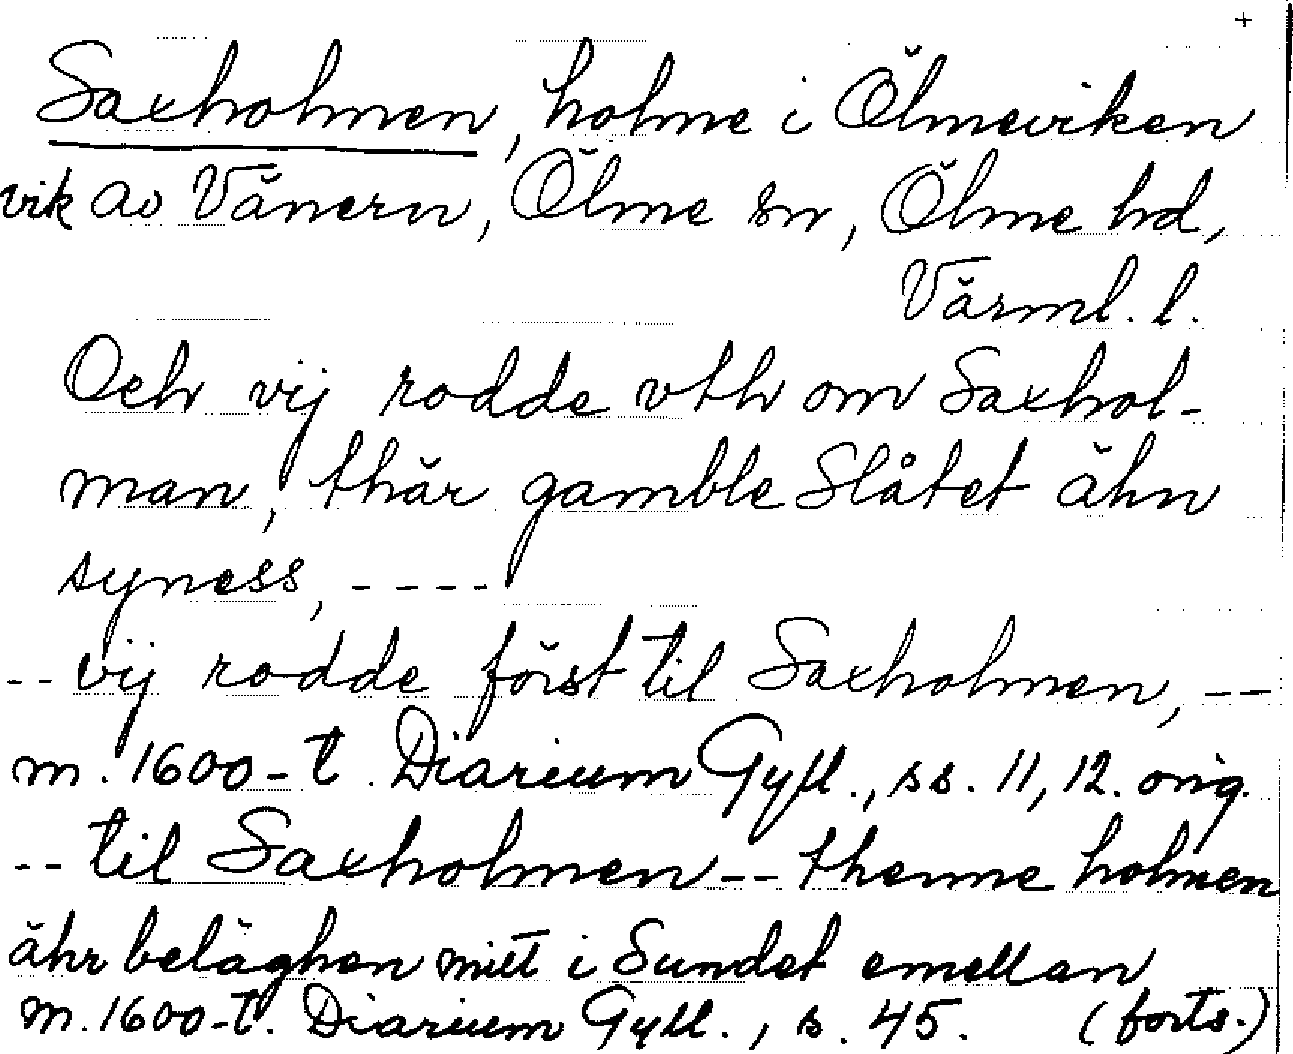 +
Saxholmen, holme i Ölmeviken
vik av Vänern, Ölme sn, Ölme hd,
Värml. l.
Och vij rodde vth om Saxhol-
man, thär gamble Slåtet ähn
syness, ----
-- vij rodde först til Saxholmen, --
m. 1600-t. Diarium Gyll., ss. 11, 12. orig.
-- til Saxholmen -- thenne holmen
ähr beläghen mitt i Sundet emellan
m. 1600-t. Diarium Gyll., s. 45. (forts.)